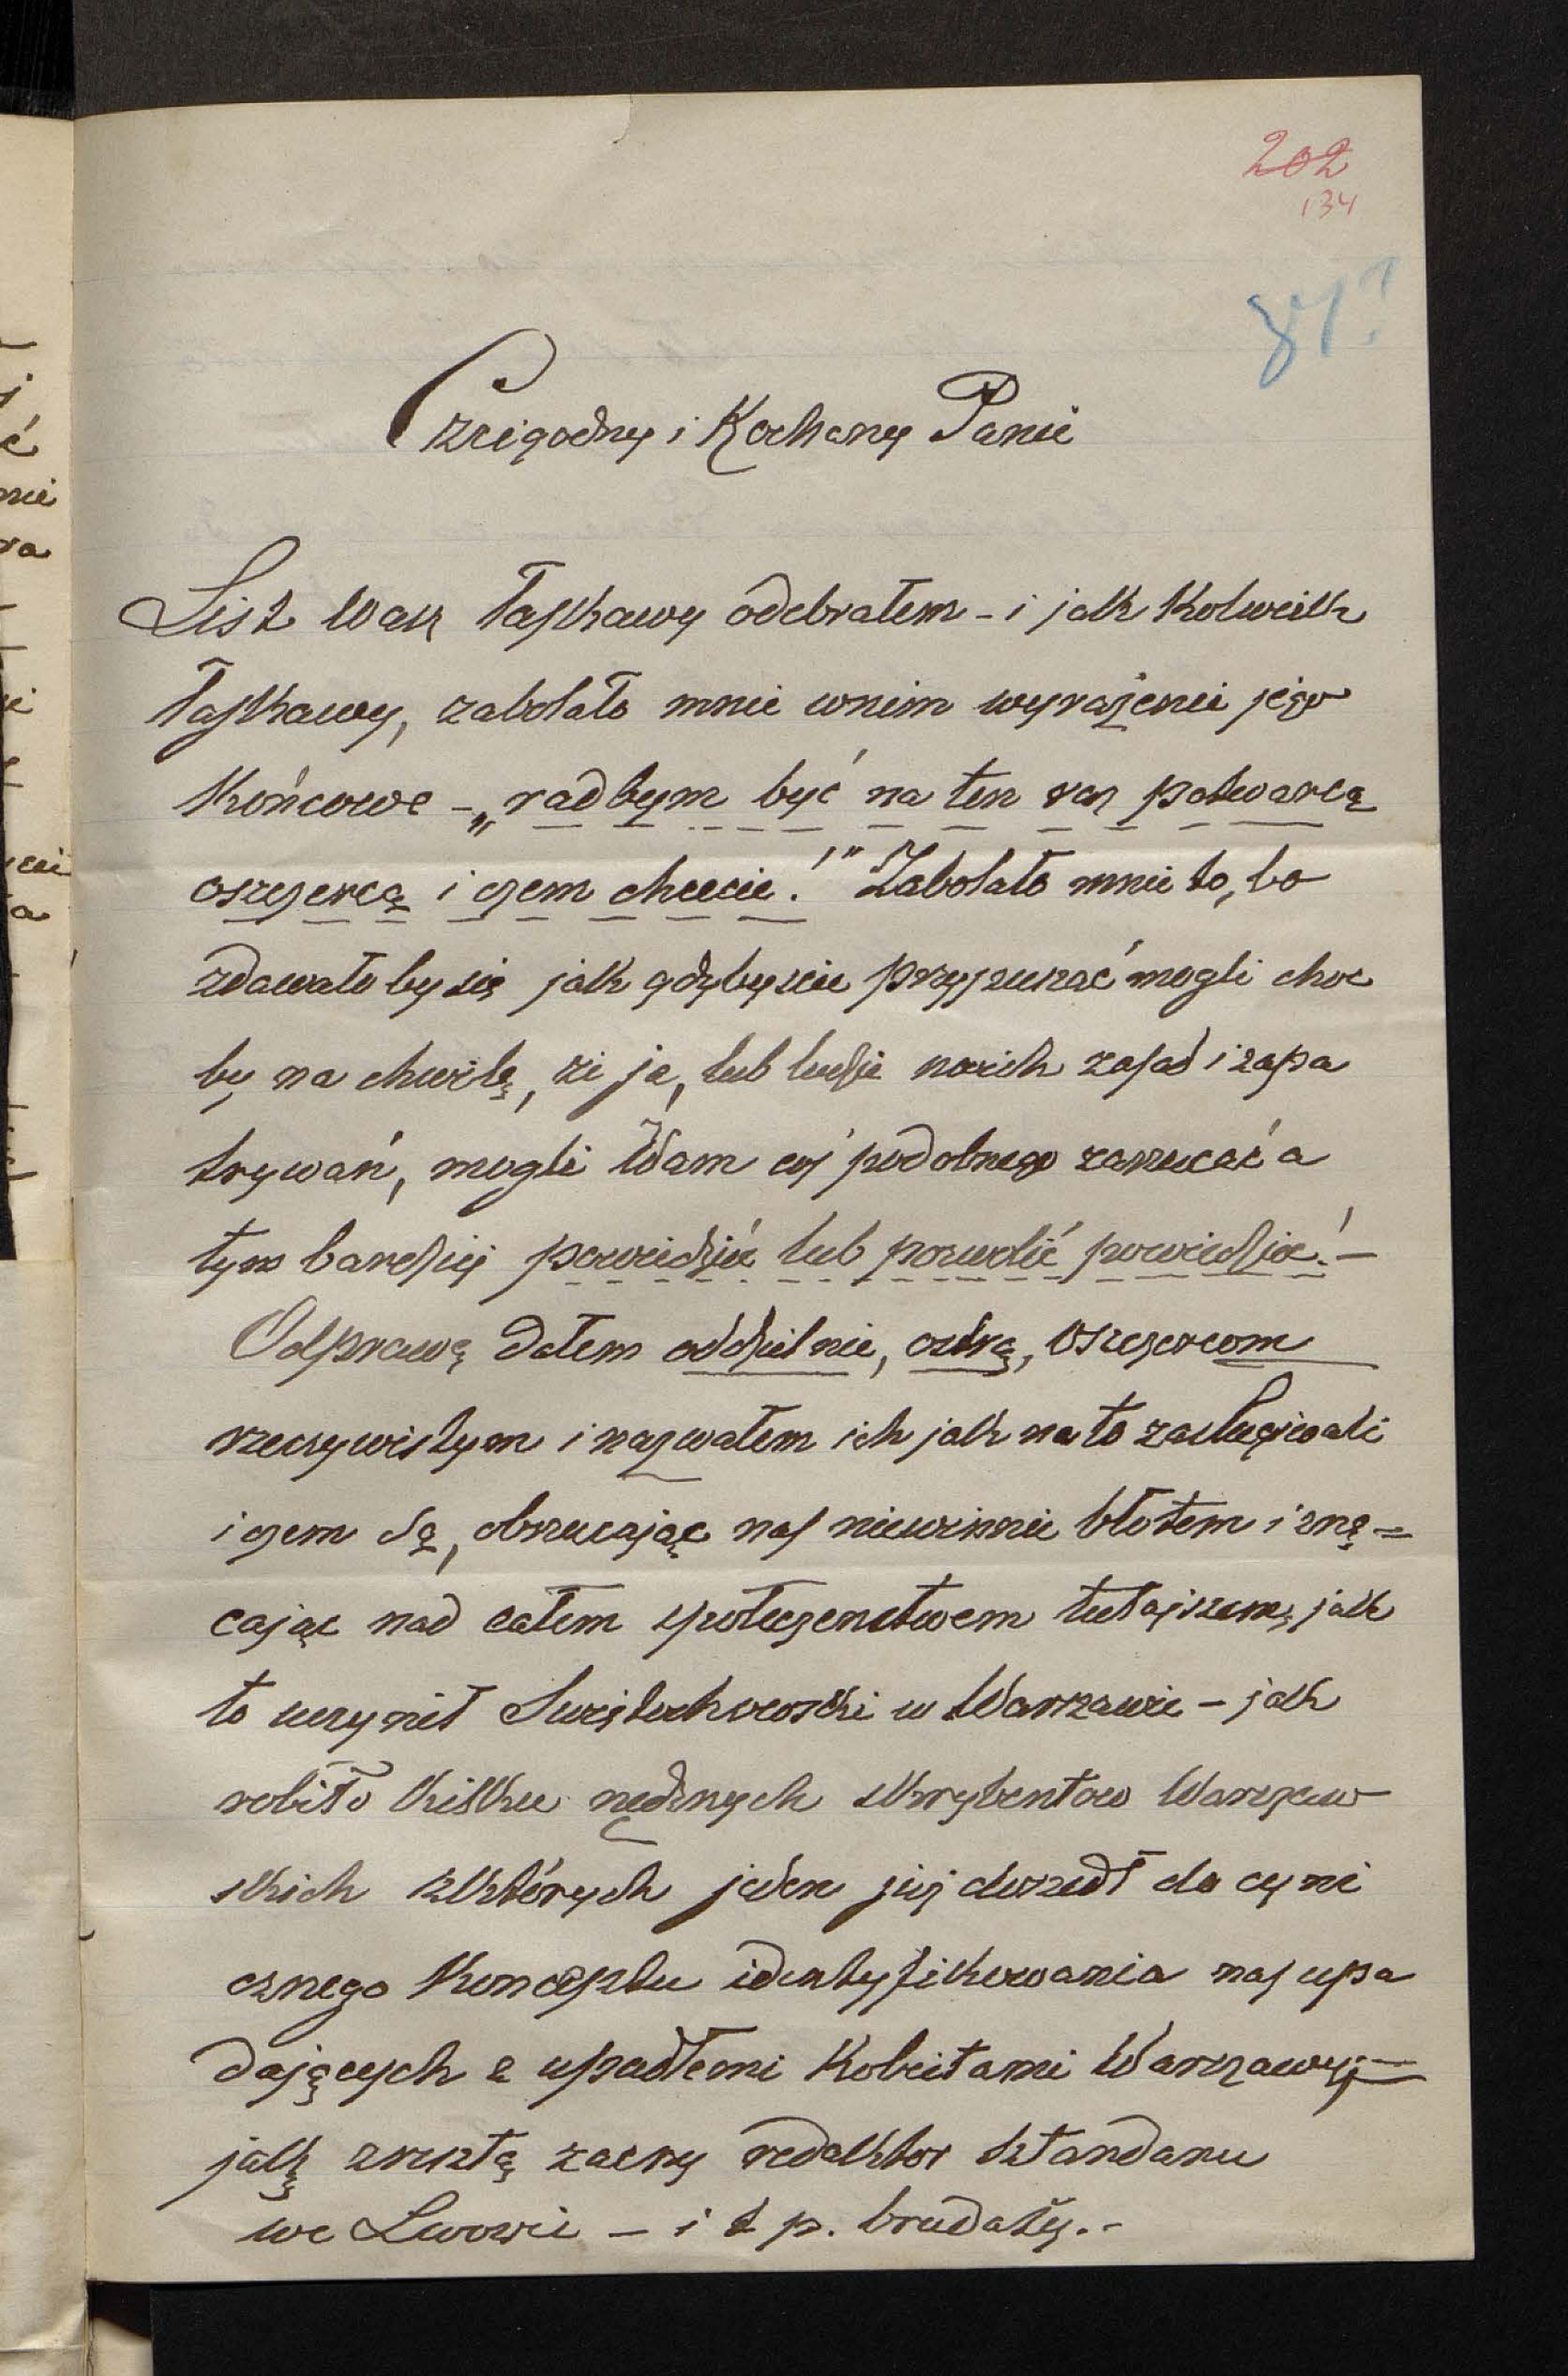 202
134
87?
Czcigodny i Kochany Panie
List Wasz łaskawy odebrałem - i jak kolwiek
łaskawy, zabolało mnie wnim wyrażenie jego
końcowe - „radbym być na ten raz potwarcą
oszczercą i czem chcecie!" Zabolało mnie to, bo
zdawało by się jak gdybyście przypuszać mogli choc
by na chwilę, że ja, lub ludzie moich zasad i zapa
trywań, mogli Wam coś podobnego zarzucać a
tym bardziej powiedzieć lub pozwolić powiedzieć! -
Odprawę dałem oddzielnie, ostrą, oszczercom
rzeczywistym i nazwałem ich jak na to zasługiwali
i czem są, obrzucając nas niewinnie błotem i znę=
cając nad całem społeczeństwem tutajszem, jak
to uczynił Swiętochowski w Warszawie - jak
robiło kilku nędznych skrybentow Warszaw
skich zktórych jeden już doszedł do cyni
cznego konceptu identyfikowania nas upa
dających z upadłemi kobietami Warszawy; -
jak zresztą zacny redaktor sztandaru
we Lwowie - i t p. brudały. -